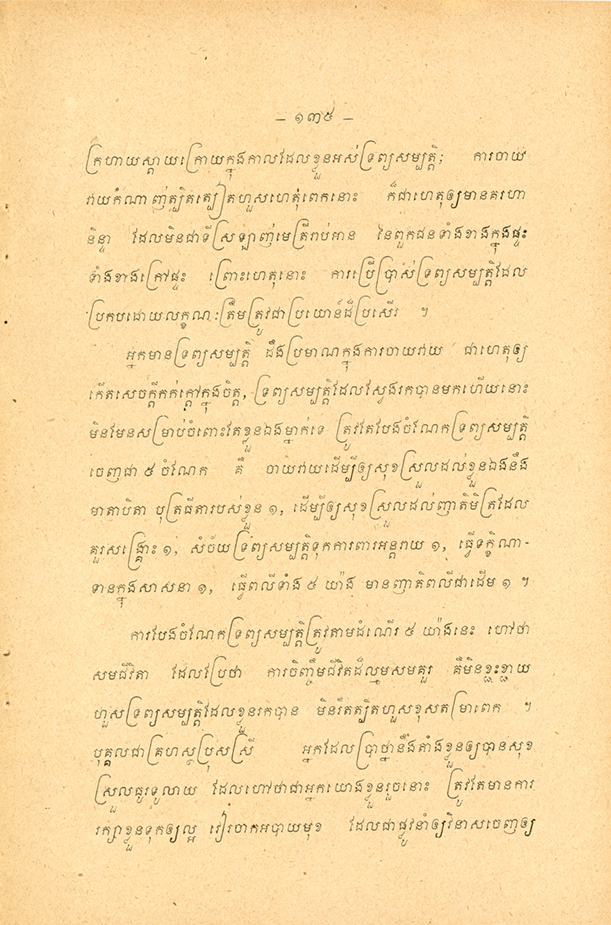 – ១៣៥ –
ក្រហាយស្ដាយក្រោយក្នុងកាលដែលខ្លួនអស់ទ្រព្យសម្បត្តិ; ការចាយ
វាយកំណាញ់ត្បិតត្បៀតហួសហេតុពេកនោះ ក៏ជាហេតុឲ្យមានគរហា
និន្ទា ដែលមិនជាទីស្រឡាញ់មេត្រីរាប់អាន នៃពួកជនទាំងខាងក្នុងផ្ទះ
ទាំងខាងក្រៅផ្ទះ ព្រោះហេតុនោះ ការប្រើប្រាស់ទ្រព្យសម្បត្តិដែល
ប្រកបដោយលក្ខណៈត្រឹមត្រូវជាប្រយោជន៍ដ៏ប្រសើរ ។
អ្នកមានទ្រព្យសម្បត្តិ ដឹងប្រមាណក្នុងការចាយវាយ ជាហេតុឲ្យ
កើតសេចក្ដីកក់ក្ដៅក្នុងចិត្ត, ទ្រព្យសម្បត្តិដែលស្វែងរកបានមកហើយនោះ
មិនមែនសម្រាប់ចំពោះតែខ្លួនឯងម្នាក់ទេ ត្រូវតែបែងចំណែកទ្រព្យសម្បត្តិ
ចេញជា ៥ ចំណែក គឺ ចាយវាយដើម្បីឲ្យសុខស្រួលដល់ខ្លួនឯងនឹង
មាតាបិតា បុត្រធីតារបស់ខ្លួន ១, ដើម្បីឲ្យសុខស្រួលដល់ញាតិមិត្រដែល
គួរសង្គ្រោះ ១, សំច័យទ្រព្យសម្បត្តិទុកការពារអន្តរាយ ១, ធ្វើទក្ខិណា-
ទានក្នុងសាសនា ១, ធ្វើពលីទាំង ៥ យ៉ាង មានញាតិពលីជាដើម ១ ។
ការបែងចំណែកទ្រព្យសម្បត្តិត្រូវតាមដំណើរ ៥ យ៉ាងនេះ ហៅថា
សមជីវិតា ដែលប្រែថា ការចិញ្ចឹមជីវិតដ៏ល្មមសមគួរ គឺមិនខ្ជះខ្ជាយ
ហួសទ្រព្យសម្បត្តិដែលខ្លួនរកបាន មិនរឹតត្បិតហួសខុសតម្រាពេក ។
បុគ្គលជាគ្រហស្ថប្រុសស្រី អ្នកដែលប្រាថ្នានឹងតាំងខ្លួនឲ្យបានសុខ
ស្រួលធូរទូលាយ ដែលហៅថាជាអ្នកយោងខ្លួនរួចនោះ ត្រូវតែមានការ
រក្សាខ្លួនទុកឲ្យល្អ វៀរចាកអបាយមុខ ដែលជាផ្លូវនាំឲ្យវិនាសចេញឲ្យ